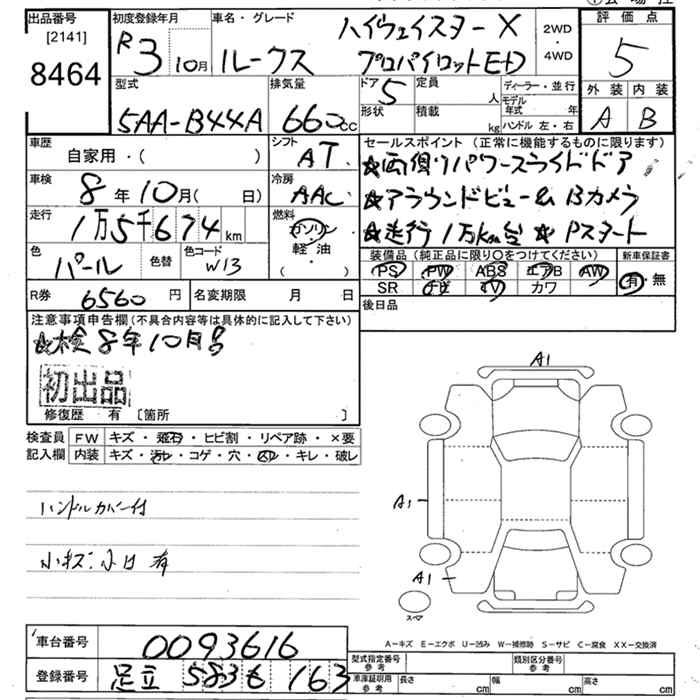 出品番号 初度登録年月 車名・グレード 評価点
[2141]
8464
R3 10月 ルークス
ハイウェイスター X
プロパイロットED
2WD
・
4WD
5
型式 排気量 ドア 定員 ディーラー・並行 外装 内装
5AA-B44A 660cc 5 人 モデル年式 年 A B
形状 積載 kg ハンドル 左・右
車歴 シフト セールスポイント(正常に機能するものに限ります)
自家用・( ) AT
★両側パワースライドドア
車検 8年10月( 日) 冷房 AAC
★アラウンドビュー& Bカメラ
走行 1万5千674km 燃料 ガソリン・軽油・( )
★走行1万km台 ★Pスタート
色 パール 色替 色コード W13
装備品(純正品に限り○をつけてください) 新車保証書
PS PW ABS エアB AW 有・無
SR ナビ TV カワ
R券 6560円 名変期限 月 日 後日品
注意事項申告欄(不具合内容等は具体的に記入して下さい)
★検8年10月
初出品
修復歴 有 [箇所 ]
検査員 FW キズ・飛石・ヒビ割・リペア跡・×要
記入欄 内装 キズ・汚レ・コゲ・穴・スレ・キレ・破レ
ハンドルカバー付
小キズ、小凹有
A1
A1
A1
スペア
A-キズ E-エクボ U-凹み W-補修跡 S-サビ C-腐食 XX-交換済
車台番号 0093616
登録番号 足立 583 も 163
型式指定番号 参考 類別区分番号 参考
車庫証明用 参考 長さ cm 幅 cm 高さ cm